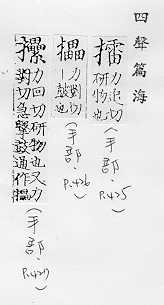 四聲篇海
擂 力切研物也（手部．P.425）
力對切｜鼓也（手部．P.426）
力回切研物也又力對切急擊鼓通作（手部．P.427）